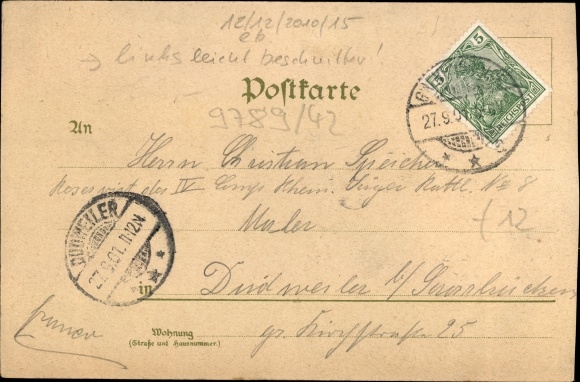 12/12/2010/15
eb
→ links leicht beschnitten!
Postkarte
9789/42
An
Herrn Christian Speicher
Reservist des IV. Comp. Rhein. Jäger Batll. No 8
Maler
12.
in Dudweiler b/Saarbrücken
Wohnung
(Straße und Hausnummer.)
gr. Kirchstraße 25
franco
5
5
REICHSPOST
27.9.0
DUDWEILER
27.9.01. 11-12V.